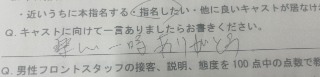 ・近いうちに本指名する・指名したい・他に良いキャストが居なけ
Q. キャストに向けて一言ありましたらお書きください。
楽しい一時ありがとう
Q. 男性フロントスタッフの接客、説明、態度を100点中の点数で教